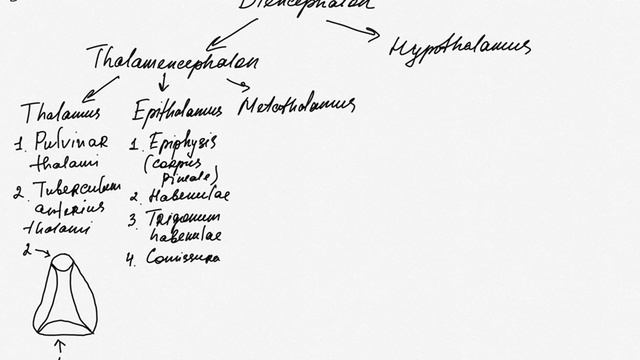 Diencephalon
Hypothalamus
Thalamencephalon
Thalamus
Epithalamus
Metathalamus
1. Pulvinar
thalami
2. Tuberculum
anterius
thalami
1. Epiphysis
(corpus
pineale)
2. Habenulae
3. Trigonum
habenulae
4. Comissura
2